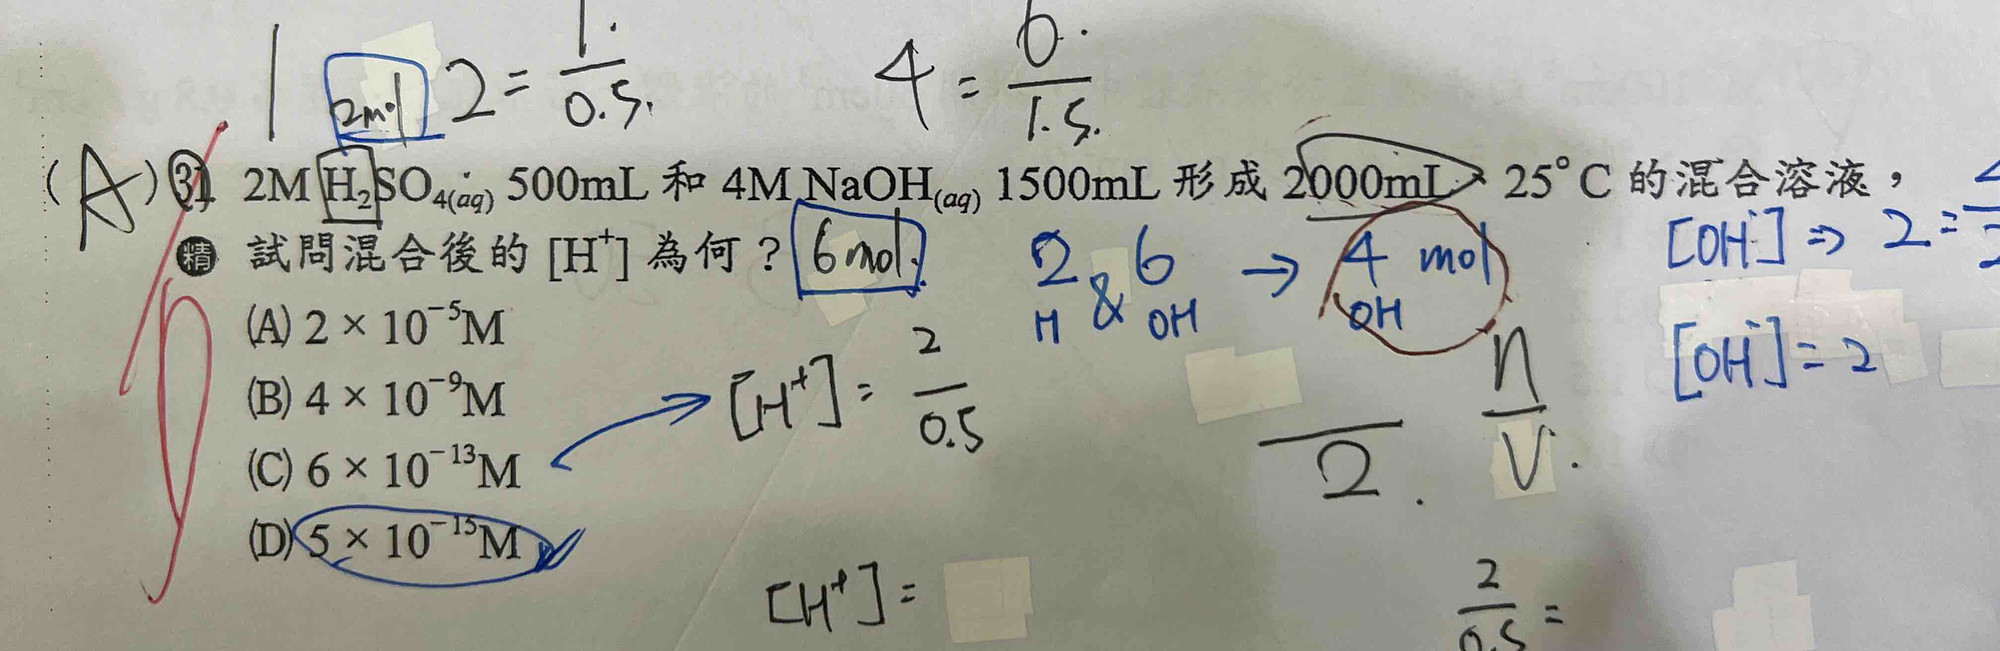 1 2mol 2 = 1. / 0.5. 4 = 6. / 1.5.
(A) 31 2M H₂SO₄(aq) 500mL 和 4M NaOH(aq) 1500mL 形成 2000mL,25°C 的混合溶液,
精 試問混合後的 [H⁺] 為何? 6mol. 2 H & 6 OH → 4 mol OH [OH⁻] ⇒ 2 =
(A) 2 × 10⁻⁵M
[OH⁻] = 2
(B) 4 × 10⁻⁹M [H⁺] = 2 / 0.5 — / 2. n / V.
(C) 6 × 10⁻¹³M
(D) 5 × 10⁻¹⁵M
[H⁺] = 2 / 0.5 =